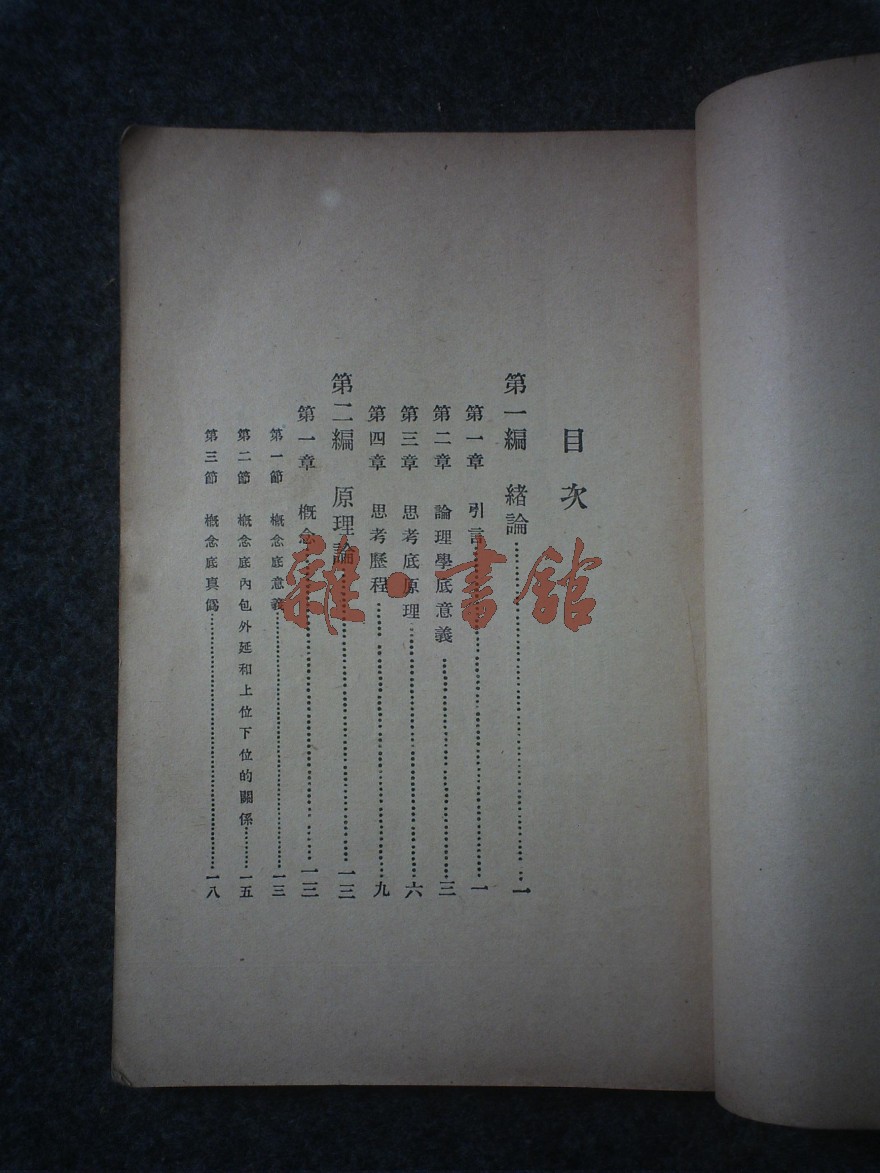 目次
第一編　緒論……一
第一章　引言……一
第二章　論理學底意義……三
第三章　思考底原理……六
第四章　思考歷程……九
第二編　原理論……一三
第一章　概念……一三
第一節　概念底意義……一三
第二節　概念底內包外延和上位下位的關係……一五
第三節　概念底真僞……一八
雜·書館